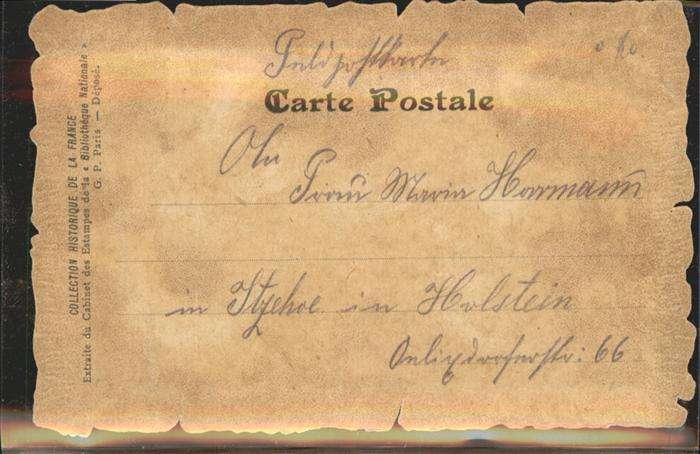 Feldpostkarte
Carte Postale
An
Frau Maria Harmann
in Itzehoe in Holstein
66
COLLECTION HISTORIQUE DE LA FRANCE
Extraite du Cabinet des Estampes de la « Bibliothèque Nationale »
G. P. Paris. — Déposé.